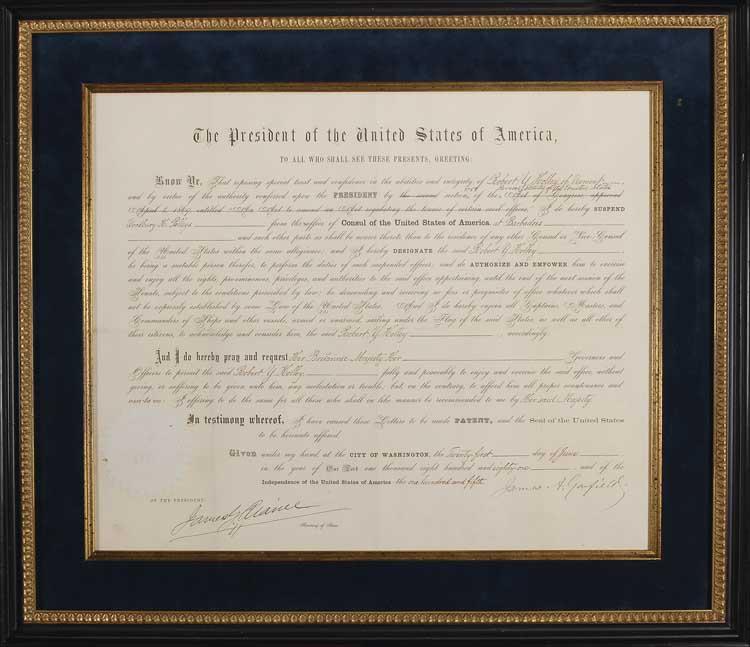 The President of the United States of America,
TO ALL WHO SHALL SEE THESE PRESENTS, GREETING:
Know Ye, That reposing special trust and confidence in the abilities and integrity of Robert Y. Holley of Vermont
and by virtue of the authority conferred upon the PRESIDENT by the section, of the
I do hereby SUSPEND
from the office of Consul of the United States of America, at Barbados
and such other parts as shall be nearer thereto than to the residence of any other Consul or Vice-Consul
of the United States within the same allegiance; and I hereby DESIGNATE the said Robert Y. Holley
he being a suitable person therefor, to perform the duties of such suspended officer, and do AUTHORIZE AND EMPOWER him to exercise
and enjoy all the rights, preeminences, privileges, and authorities to the said office appertaining, until the end of the next session of the
Senate, subject to the conditions prescribed by law: he demanding and receiving no fees or perquisites of office whatever which shall
not be expressly established by some Law of the United States. And I do hereby enjoin all Captains, Masters, and
Commanders of Ships and other vessels, armed or unarmed, sailing under the Flag of the said States, as well as all other of
their citizens, to acknowledge and consider him, the said Robert Y. Holley, accordingly.
And I do hereby pray and request Her Britannic Majesty, Her Governors and
Officers to permit the said Robert Y. Holley fully and peaceably to enjoy and exercise the said office, without
giving, or suffering to be given unto him, any molestation or trouble, but on the contrary, to afford him all proper countenance and
assistance: I offering to do the same for all those who shall in like manner be recommended to me by Her said Majesty
In testimony whereof, I have caused these Letters to be made PATENT, and the Seal of the United States
to be hereunto affixed.
Given under my hand at the CITY OF WASHINGTON, the Twenty first day of June
in the year of Our Lord one thousand eight hundred and eighty-one, and of the
Independence of the United States of America the one hundred and fifth
James A. Garfield
BY THE PRESIDENT:
James G. Blaine
Secretary of State